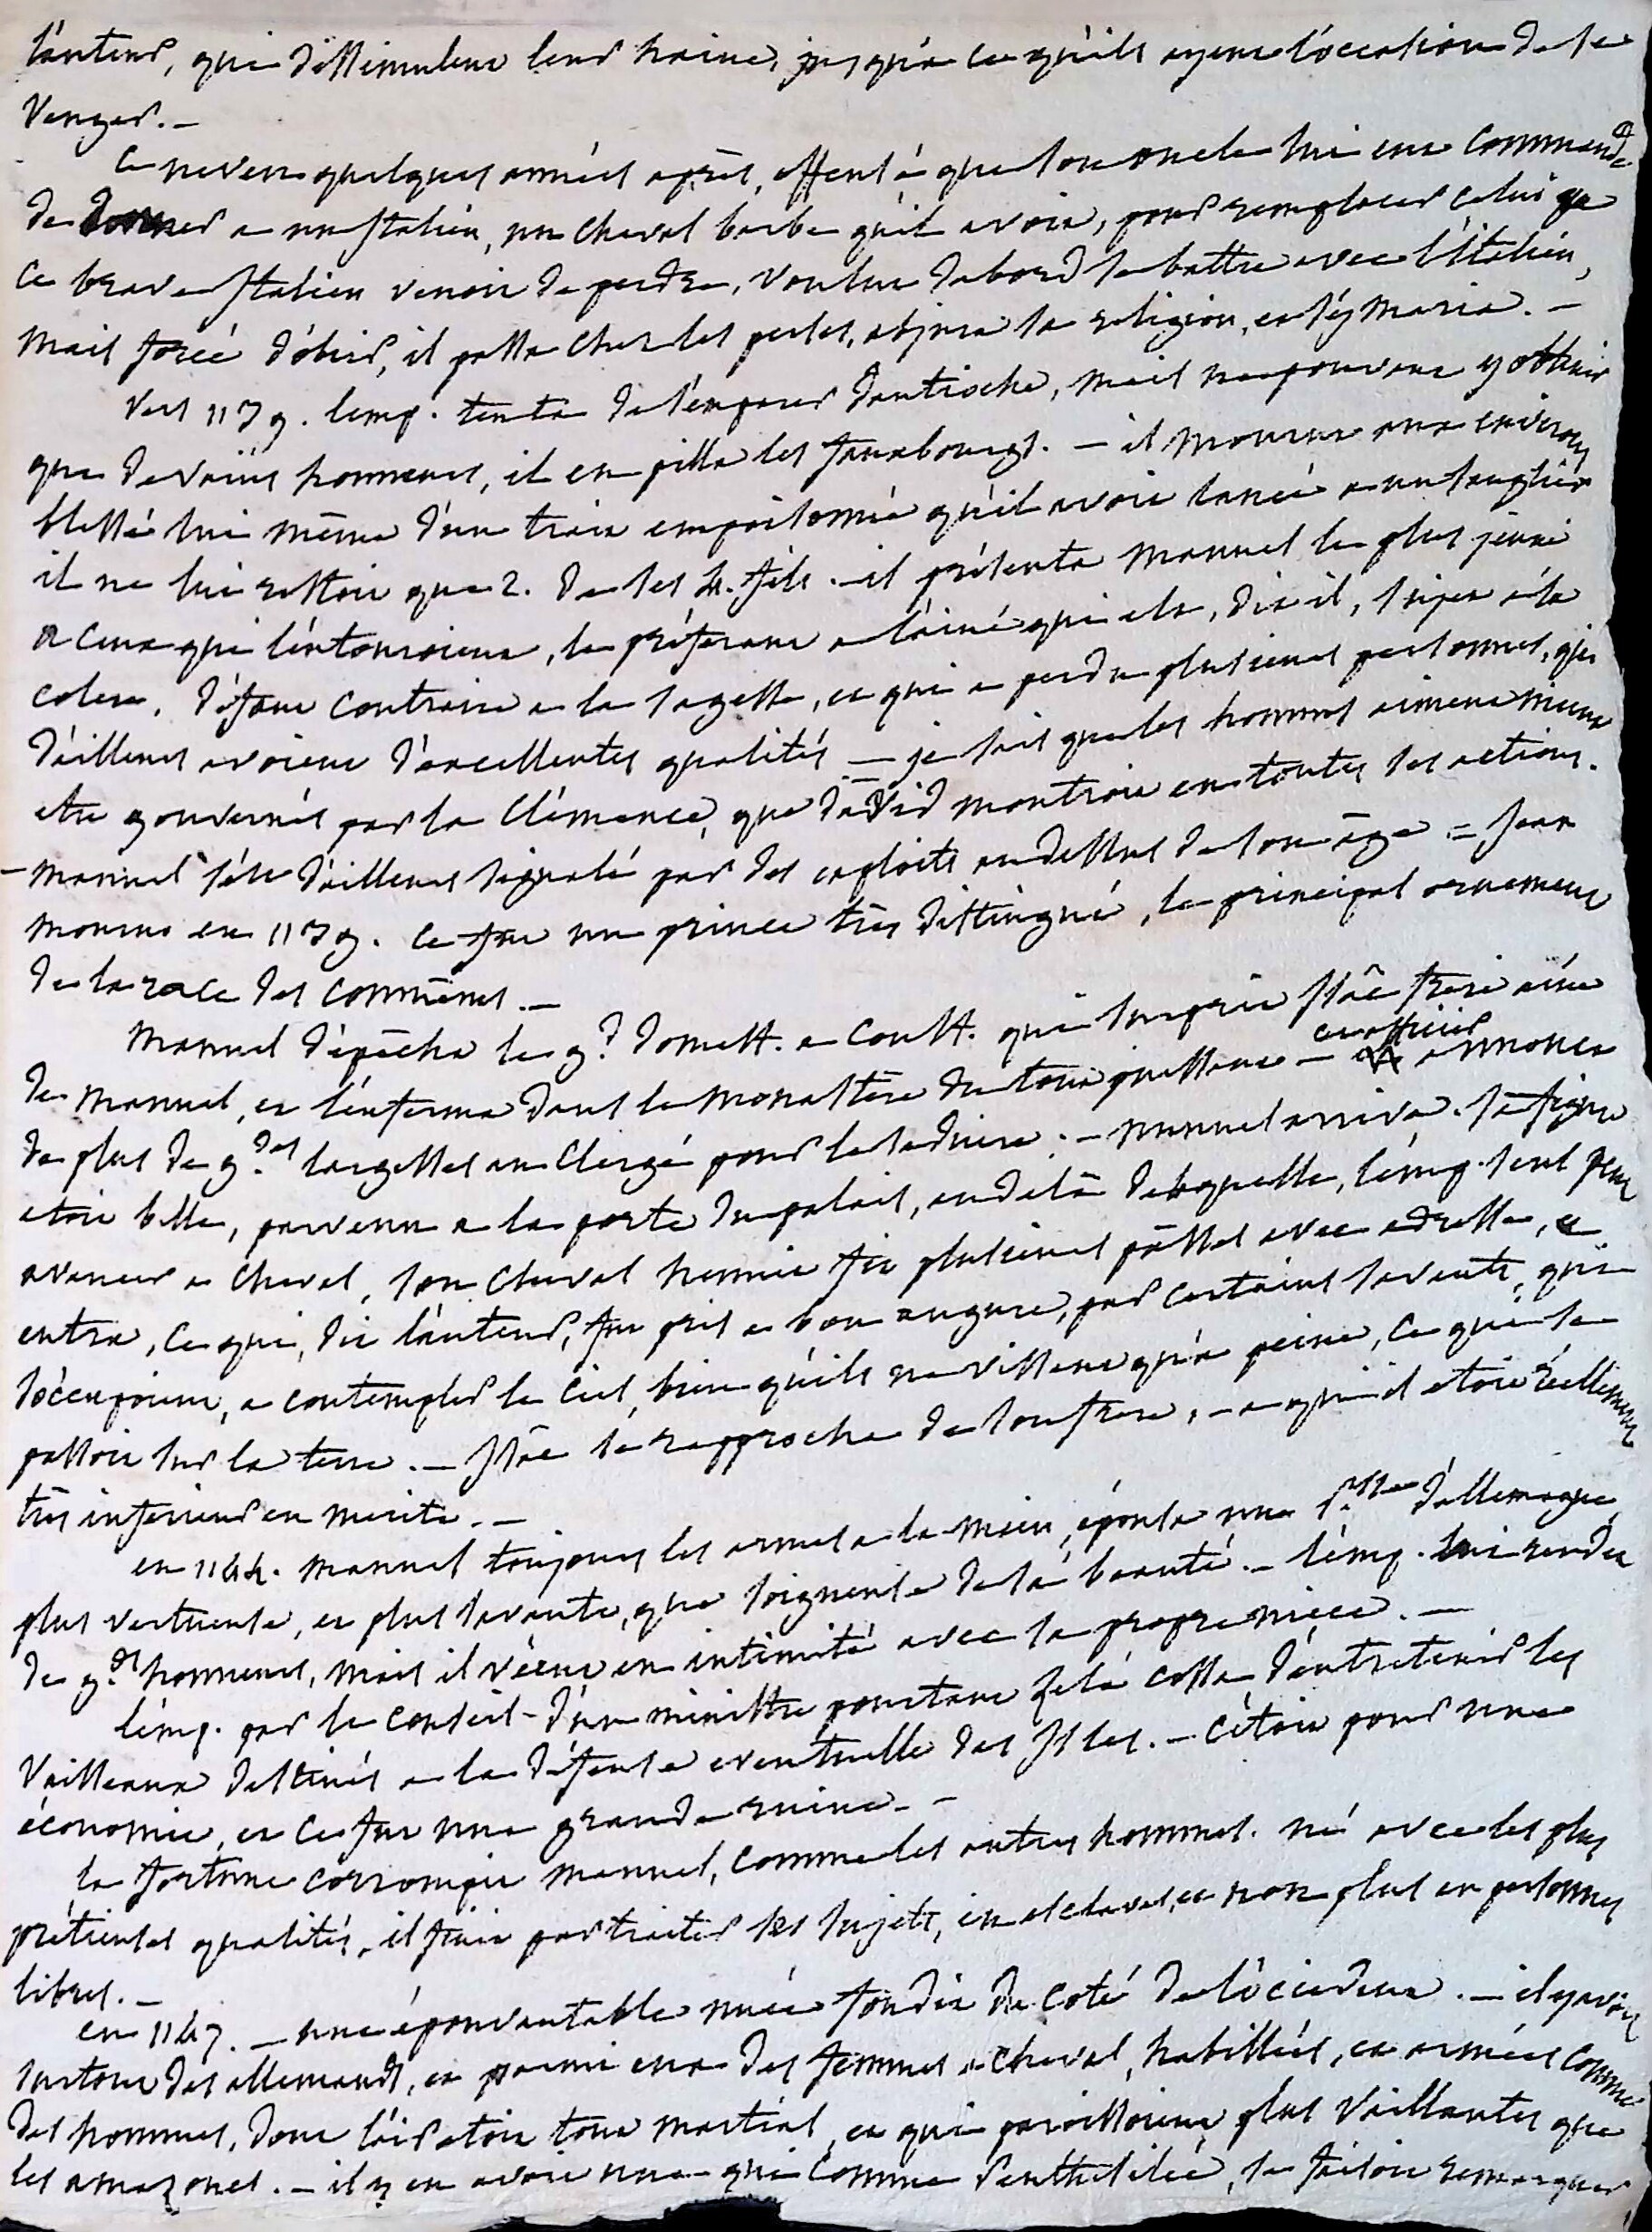 l'auteur, qui dissimulent leur haine, jusqu'à ce qu'ils ayent l'occasion de se
venger. —
Ce neveu quelques années après, offensé que son oncle lui eut commandé
de donner a un Italien, un cheval barbe qu'il avoit, pour remplacer celui que
ce brave Italien venoit de perdre, voulut dabord se battre avec l'italien,
mais forcé d'obéir, il passa chez les perses, abjura sa religion, et s'y maria. —
Vers 1139. l'emp. tenta de s'emparer d'antioche, mais ne pouvant y obtenir
que de vains honneurs, il en pilla les fauxbourgs. — il mourut aux environs
blessé lui même d'un trait empoisonné qu'il avoit lancé a un sanglier
il ne lui restoit que 2. de ses 4. fils. — il présenta manuel le plus jeune
a ceux qui l'entouroient, le préférant a l'ainé qui est, dit il, sujet a la
colere, défaut contraire a la sagesse, et qui a perdu plusieurs personnes, qui
d'ailleurs avoient d'excellentes qualités — je sais que les hommes aiment mieux
etre gouvernés par la clémence, que david montroit en toutes ses actions.
— manuel s'est d'ailleurs signalé par des exploits au dessus de son âge = Jean
mourut en 1139. ce fut un prince très distingué, le principal ornement
de la race des comnènes. —
Manuel dépêcha le gd domest. a Const. qui surprit Isâc frere ainé
de manuel, et l'enferma dans le monastère du tout puissant — cet officier annonca
de plus de gdes largesses au clergé pour le séduire. — manuel arriva. sa figure
etoit belle, parvenu a la porte du palais, au delà de laquelle, l'emp. seul peut
avancer a cheval, son cheval hennit fit plusieurs passes avec adresse, et
entra, ce qui, dit l'auteur, fut pris a bon augure, par certains savants, qui
s'occupoient, a contempler le ciel, bien qu'ils ne vissent qu'a peine, ce qui se
passoit sur la terre. — Isâc se rapprocha de son frere, — a qui il etoit réellement
très inferieur en merite. —
en 1144. manuel toujours les armes a la main, épousa une Psse d'allemagne,
plus vertueuse, et plus savante, que soigneuse de sa beauté. — l'emp. lui rendit
de gds honneurs, mais il vécut en intimité avec sa propre niece. —
l'emp. par le conseil d'un ministre pourtant zélé cessa d'entretenir les
vaisseaux destinés a la défense eventuelle des Isles. — c'étoit pour une
économie, et ce fut une grande ruine. —
la fortune corrompit manuel, comme les autres hommes. né avec les plus
prétieuses qualités, il finit par traiter ses sujets, en esclaves, et non plus en personnes
libres. —
en 1147. — une épouvantable nuée fondit du coté de l'occident. — il y avoit
surtout des allemands, et parmi eux des femmes a cheval, habillées, et armées comme
des hommes, dont l'air etoit tout martial, et qui paroissoient plus vaillantes que
les amazones. — il y en avoit une qui comme Penthésilée, se faisoit remarquer